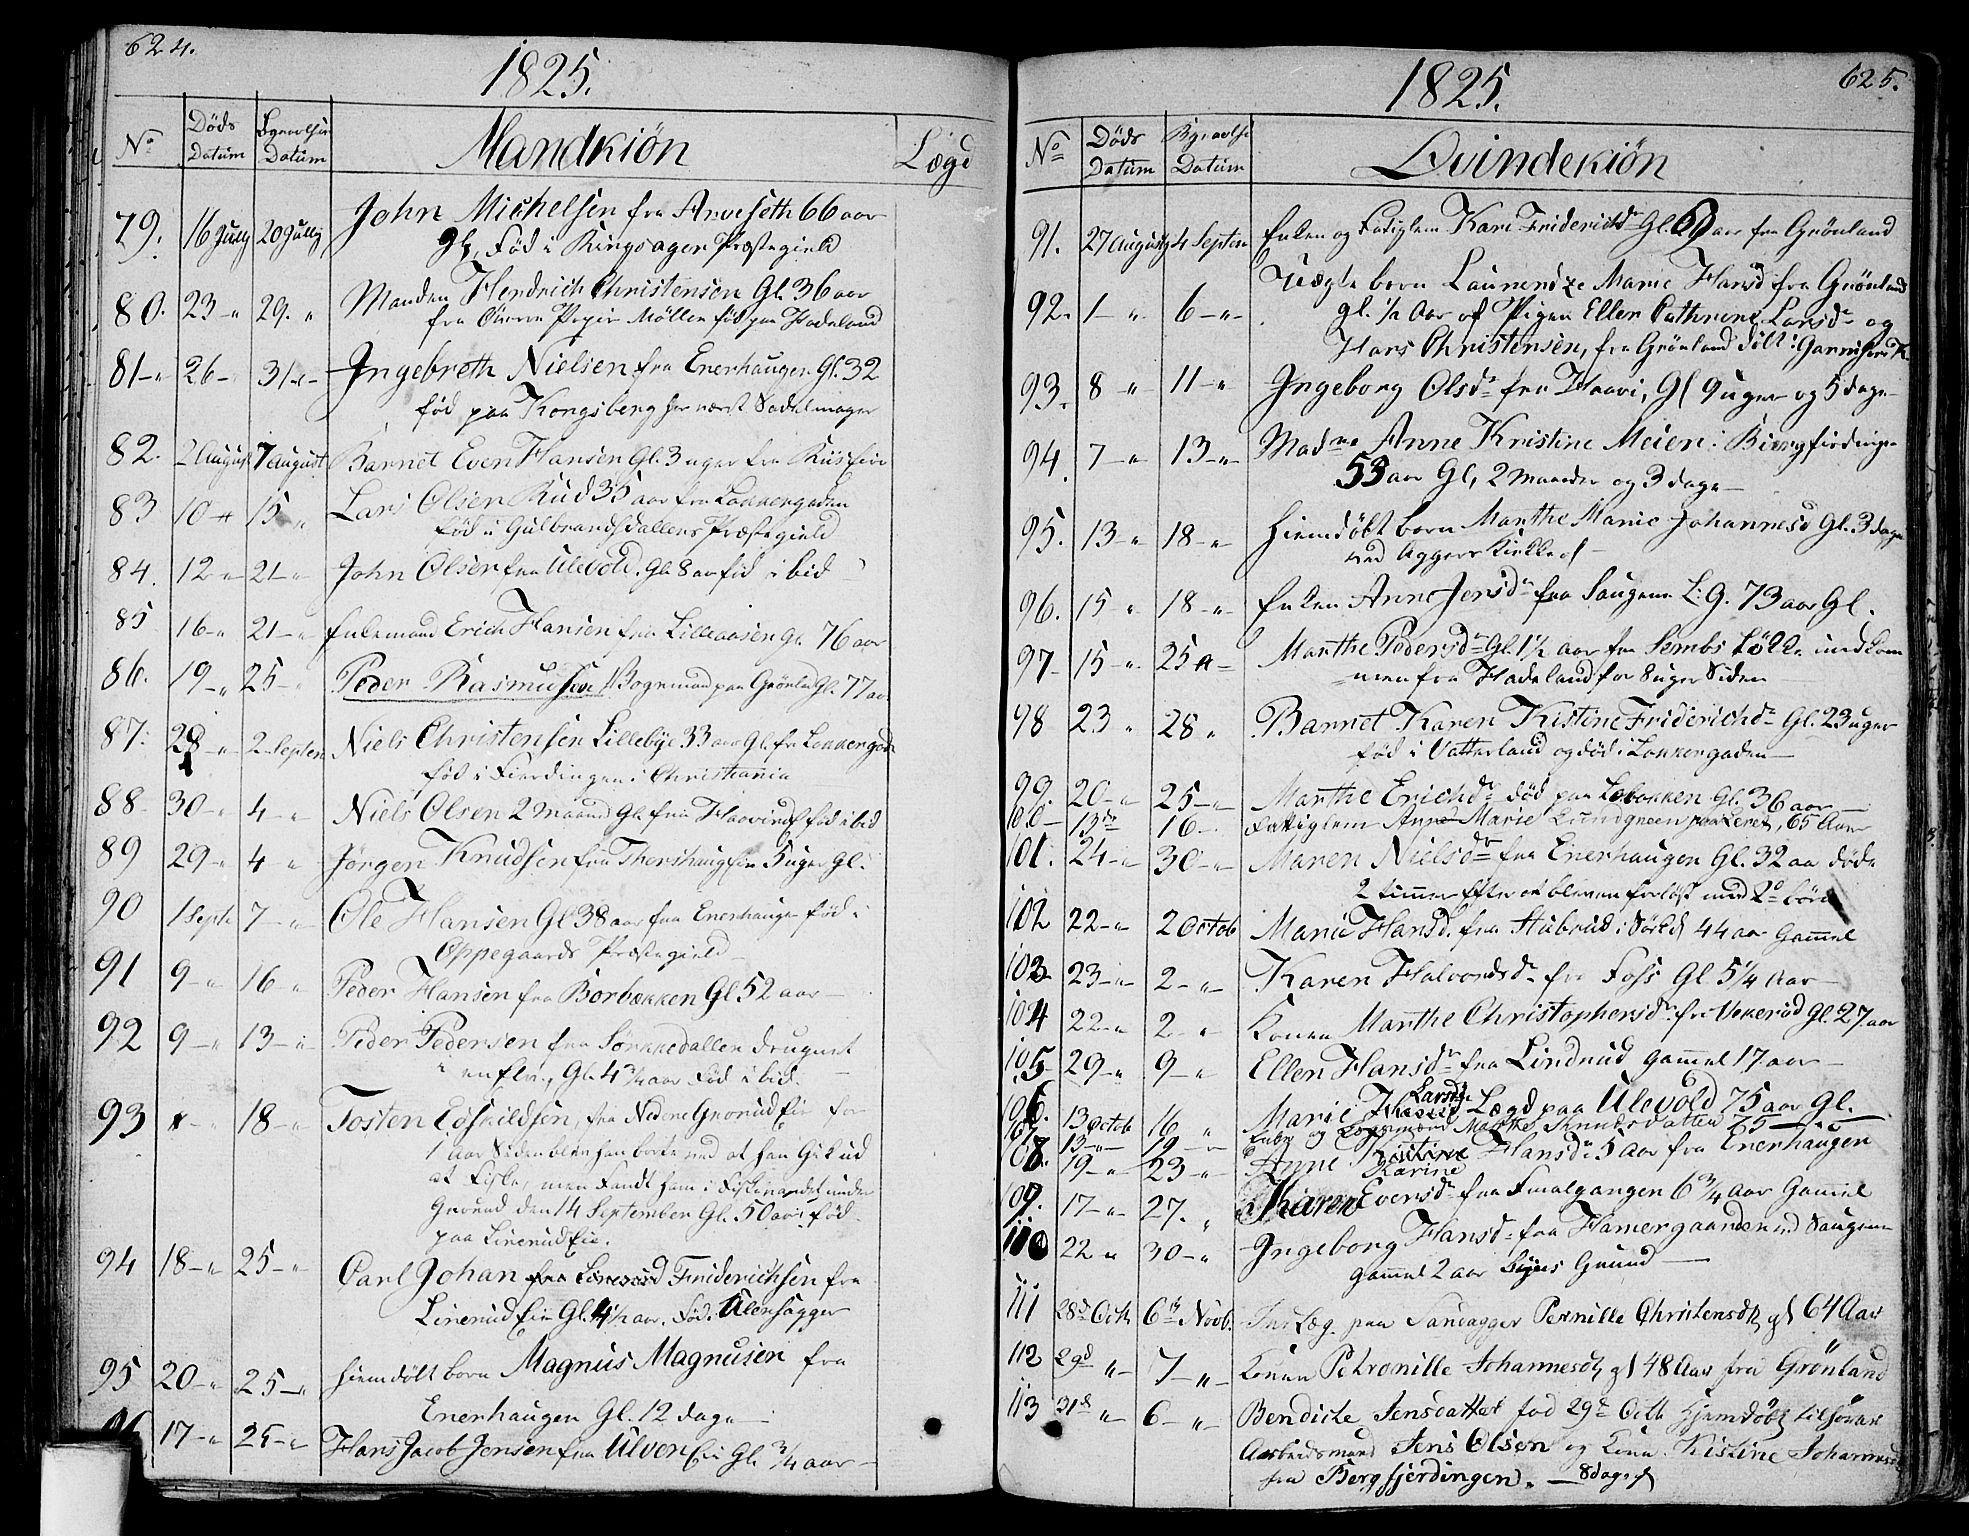 624.
1825.
No Døds Datum Begravelses Datum Mandkiön Lægd
79. 16 July 20 July John Michelsen fra Arveseth 66 aar
gl, Fød i Ringsager Præstegield
80. 23 - " 29. " Manden Hendrich Christensen Gl. 36 aar
fra Papir Møllen fød paa Hadeland
81 - " 26 - 31 - " - Ingebreth Nielsen fra Enerhaugen Gl. 32
fød paa Kongsberg Sadelmager
82. 2 August 7 August Barnet Even Hansen Gl. 3 uger fra
83 10 - " 15 " Lars Olsen Rud 35 aar fra Lakkergaden
fød i Gulbrandsdallens Præstegield
84. 12 - " 21 - " John Olsen fra Ulevold. Gl. 8 aar fød ibid
85 16 - " 21 - " Enkemand Erich Hansen fra Lilleaasen Gl. 76 aar
86. 19 - " 25 - " Peder Rasmussen paa Grönla Gl. 77 aar
87. 28 - " 2 Septem Niels Christensen Lillebye 33 aar Gl. fr Lakkergade
fød i Fierdingen i Christiania
88 30 - " 4 - " Niels Olsen 2 Maaned Gl. fra fød ibid
89 29 - " 4 " Jørgen Knudsen fra 5 uger Gl.
90 1 Septr 7 - " Ole Hansen Gl 38 aar fra Enerhaugen fød i
Oppegaards Præstegield
91 9 - " 16 " Peder Hansen fra Borbækken Gl 52 aar
92 9 - " 13 - " Peder Pedersen fra Sørkkedallen druknet
i en Gl. 4 3/4 aar Fød ibid.
93 " - " 18 - " Tosten Edskildsen, fra Nedre Gronrud Eie for
1 aar Siden blev han borte ved at han Gik ud
at Fiske, men Fandt ham i Fiskevandet under
Grorud den 14 September Gl. 50 aar, fød
paa Linerud Eie.
94 18 - " 25 - " Carl Johan fra Linerud Friderichsen fra
Linerud Eie Gl. 4 1/2 aar. Fød. Ulensagger
95 20 - " 25 - " Hiemdøbt born Magnus Magnusen fra
Enerhaugen Gl. 12 dage
96 17 - " 25 - " Hans Jacob Jensen fra Ulven Eie Gl. 3/4 aar
625.
1825.
No Døds Datum Begravelse Datum Qvindekiön
91. 27 August 4 Septem Enken og Fatiglem Kari Friderichsdr Gl. aar fra Grönland
92. 1 - " 6 - " - Uægte born Laurendze Marie Hansd fra Grönland
gl. 1/2 Aar af Pigen Ellen Cathrine Larsdr og
Hans Christensen, fra Grönland
93. 8 " 11 - " Ingeborg Olsdr fra Haavi, Gl 9 uger og 5 dage
94. 7 - " 13 - " Madme Anne Kristine Meien i Biergfierdingen
53 aar Gl, 2 Maaneder og 3 dage
95. 13 - " 18 - " Hiemdøbt born Marthe Marie Johannesd Gl. 3 dage
ved Aggers Kirkke
96. 15 " 18 - " Enken Anne Jensdr fra Saugene L: G. 73 aar Gl.
97 - 15 - " 25 " - Marthe Pedersdr Gl. 1 1/2 aar fra Sembs Løkke indkom
men fra Hadeland for 8 uger Siden
98 23 " 28 " Barnet Karen Kistine Friderichdr Gl. 23 uger
fød i Vatterland og død i Lakkergaden
99. 20 - " 25 - " Marthe Erichdr død paa Lobakken Gl. 36 aar
100 - 13de 16 - Fattiglem Anne Marie Lundgreen paa Leret, 65 Aar
101. 24 - " 30 - " Maren Nielsdr fra Enerhaugen Gl. 32 aar døde
2 timer Efter at bleven forløst med 2de börn
102 22 - " 2 Octob Marie Hansd. fra Stubrud i Sørkd 44 aar Gammel
103 23 - " 2 - " Karen Halvorsdr fra Foss Gl 5 1/4 Aar
104 22 - " 2 - " Konen Marthe Christophersdr fra Vekerød Gl. 27 aar
105 29 - " 9 - " Ellen Hansdr fra Lindrud gammel 17 aar
106. 13 Octob 16 " Marie Larsdr Lægd paa Ulevold 75 aar Gl.
107. 13 - " 19 - Marthe Knudsdatter 75
108. 19 - " 23 - " Anne Kistine Karine Hansdr 5 Aar fra Enerhaugen
109. 17 - " 27. " Karen Evensdr fra Smalgangen 6 3/4 Aar Gammel
110 22 " 30 - " Ingeborg Hansdr fra Hamergaarden ved Saugene
gammel 2 aar Grund
111 28de Octb 6te Novb. Ind Læg. paa Pernille Christensdtr gl 64 Aar
112 29d " 7 - " Konen Petronille Johannesdtr gl 48 Aar fra Grönland
113 31d " 6 - " Bendicte Jensdatter fød 29de Octb hjemdøbt tilhörer
Arbeidsmand Jens Olsen og Kone Kistine Johannesdr
fra Bergfjerdingen. - 8 dage gl